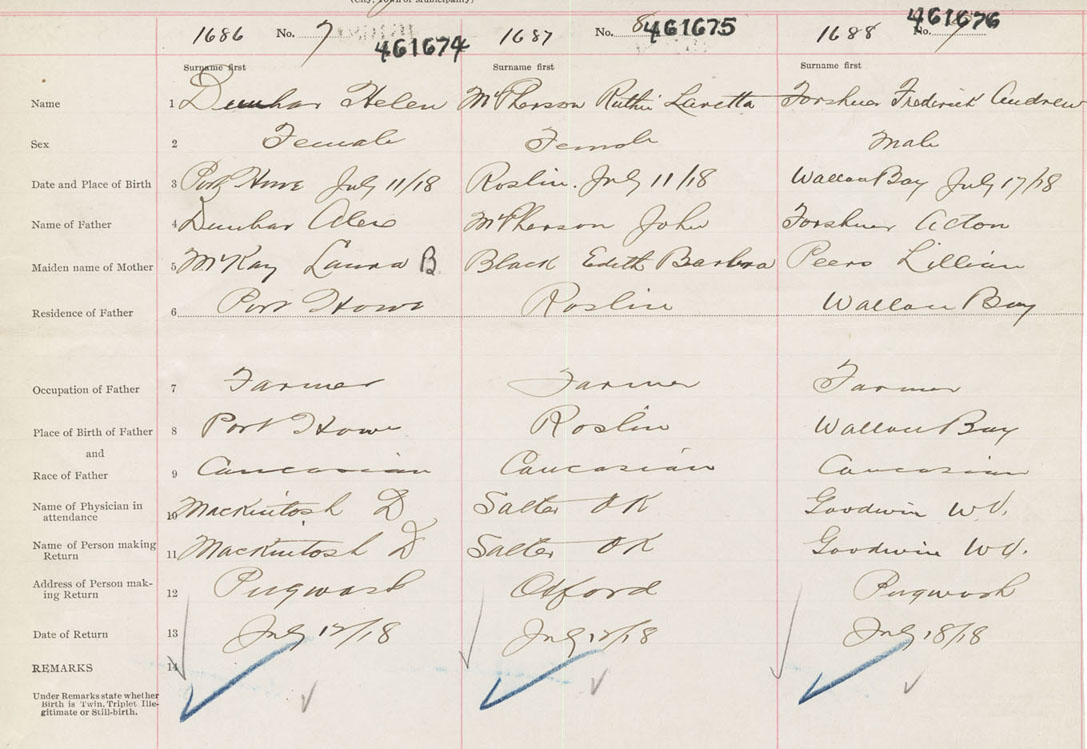 (City, Town or Municipality)
1686 No. 7 461674 1687 No. 8 461675 1688 No. 9 461676
Surname first Surname first Surname first
Name 1 Dunbar Helen McPherson Ruthie Laretta Forshner Frederick Andrew
Sex 2 Female Female Male
Date and Place of Birth 3 Port Howe July 11/18 Roslin. July 11/18 Wallace Bay July 17/18
Name of Father 4 Dunbar Alex McPherson John Forshner Acton
Maiden name of Mother 5 McKay Laura B Black Edith Barbra Peers Lillian
Residence of Father 6 Port Howe Roslin Wallace Bay
Occupation of Father 7 Farmer Farmer Farmer
Place of Birth of Father 8 Port Howe Roslin Wallace Bay
and
Race of Father 9 Caucasian Caucasian Caucasian
Name of Physician in
attendance 10 Mackintosh D Salter OK Goodwin WV.
Name of Person making
Return 11 Mackintosh D Salter OK Goodwin WV.
Address of Person mak-
ing Return 12 Pugwash Oxford Pugwash
Date of Return 13 July 12/18 July 12/18 July 18/18
REMARKS 14
Under Remarks state whether
Birth is Twin, Triplet Ille-
gitimate or Still-birth.